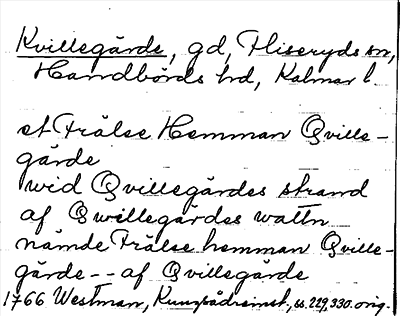 Kvillegärde, gd, Fliseryds sn,
Handbörds hd, Kalmar l.
et Frälse Hemman Qville-
gärde
wid Qvillegärdes strand
af Qwillegärdes wattn
nämde Frälse hemman Qville-
gärde -- af Qvillegärde
1766 Westman, ss. 229, 330. orig.